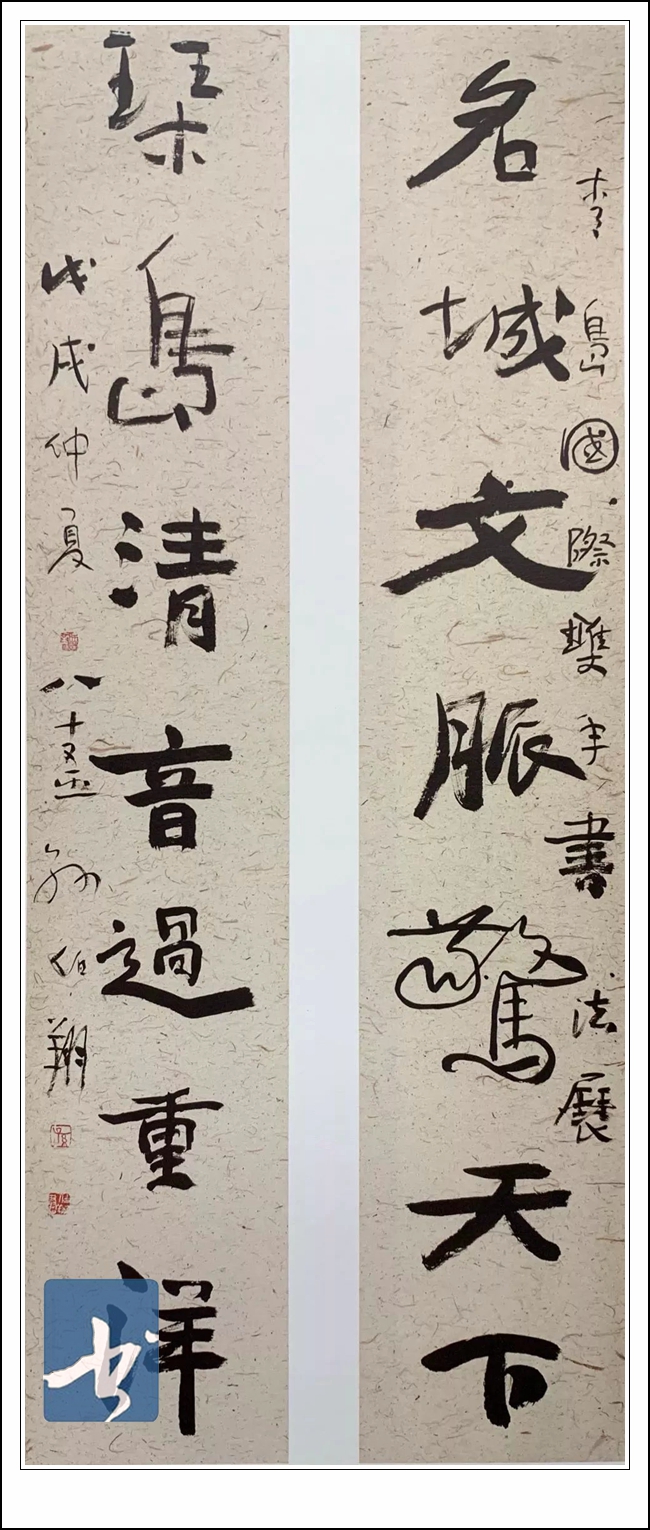 島國際雙年書法展
名城文脈驚天下
琹島清音過重洋
戊戌仲夏 八十又五 孫伯翔
书